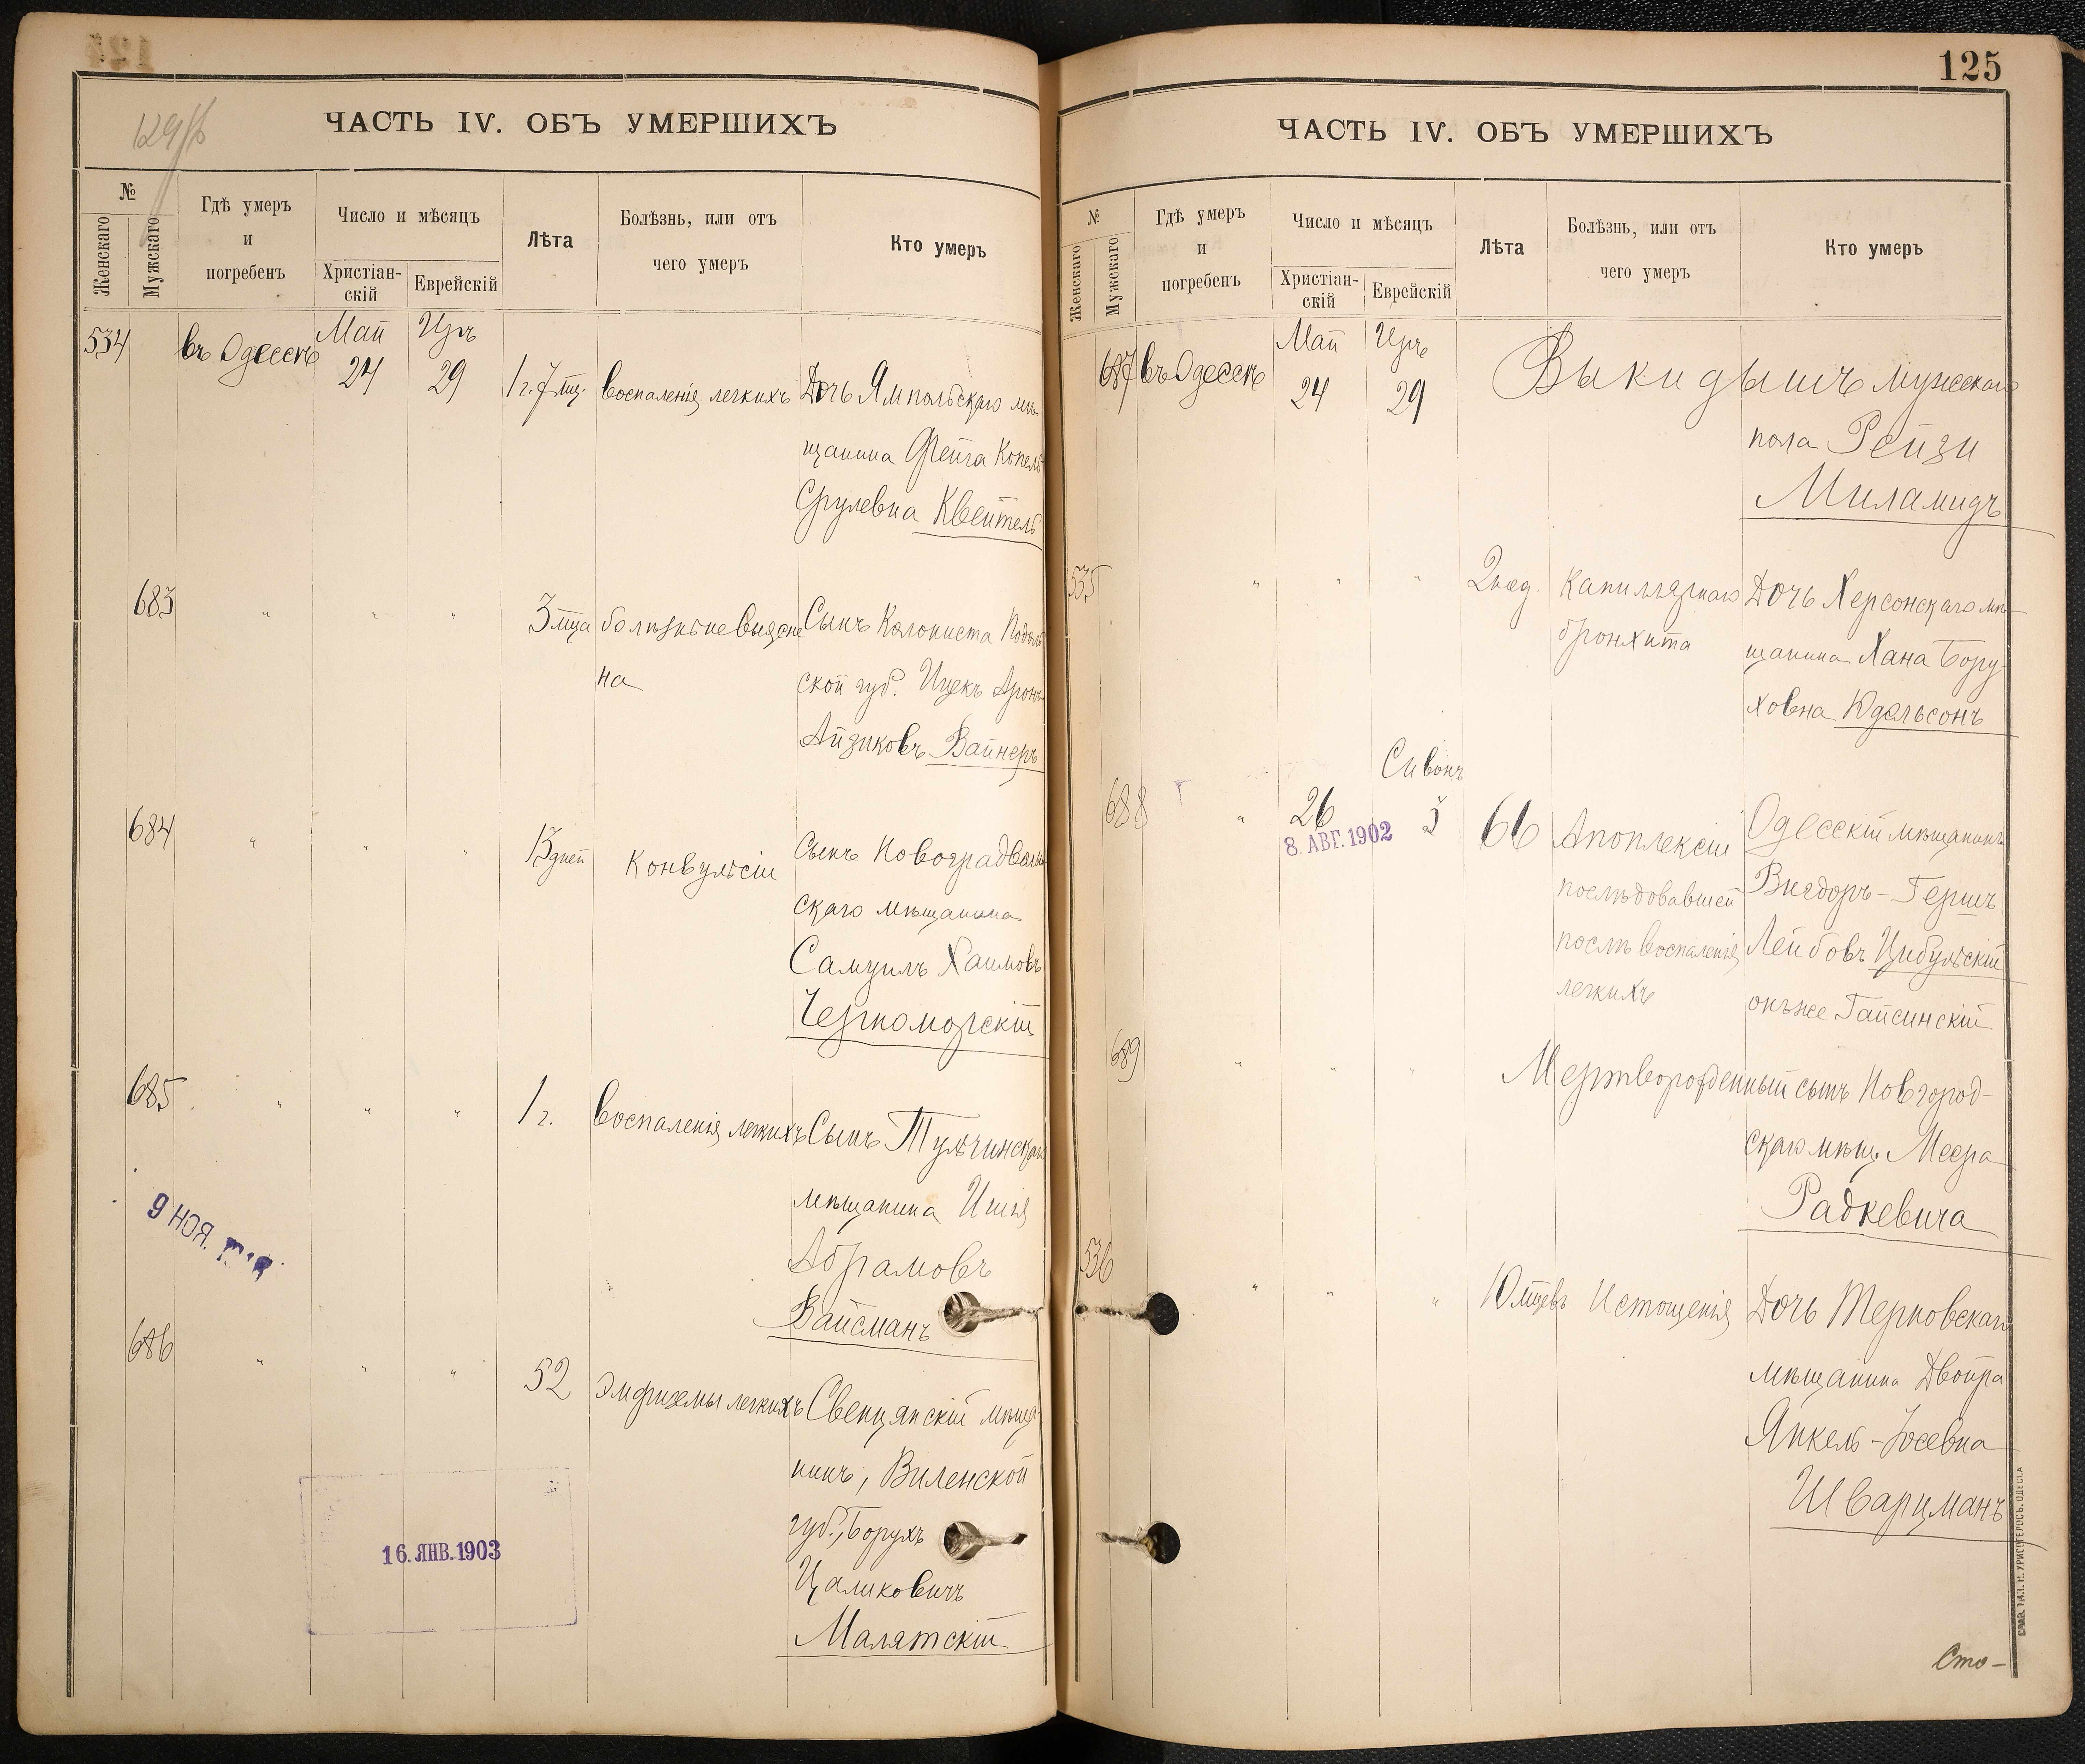 124 об
ЧАСТЬ IV. ОБЪ УМЕРШИХЪ
№
Женскаго
Мужскаго
Гдѣ умеръ
и
погребенъ
Число и мѣсяцъ
Христіан-
скій
Еврейскій
Лѣта
Болѣзнь, или отъ
чего умеръ
Кто умеръ
534
въ Одессѣ
Май
24
Iяръ
29
1 г. 7 мц.
Воспаленія легкихъ
Дочь Ямпольскаго мѣ-
щанина Фейга Копель-
Срулевна Квейтель
683
" " "
3 мца
болѣзнь не выясне
на
Сынъ Колониста Подоль
ской губ. Ицекъ Аронъ
Айзиковъ Вайнеръ
684
" " "
13 дней
Конвульсіи
Сынъ Новоградволын
скаго мѣщанина
Самуилъ Хаимовъ
Черноморскій
685
" " "
1 г.
Воспаленія легкихъ
Сынъ Тульчинскаго
мѣщанина
Абрамовъ
Вайсманъ
9 НОЯ.
686
" " "
52
Эмфиземы легкихъ
Свенцянскій мѣща-
нинъ, Виленской
губ., Борухъ
Цаликовичъ
Малятскій
16. ЯНВ. 1903
125
ЧАСТЬ IV. ОБЪ УМЕРШИХЪ
№
Женскаго
Мужскаго
Гдѣ умеръ
и
погребенъ
Число и мѣсяцъ
Христіан-
скій
Еврейскій
Лѣта
Болѣзнь, или отъ
чего умеръ
Кто умеръ
687
въ Одессѣ
Май
24
Iяръ
29
Выкидышъ мужскаго
пола Рейзи
Миламидъ
535
" " "
2 нед.
Капиллярнаго
бронхита
Дочь Херсонскаго мѣ-
щанина Хана Бору-
ховна Юдельсонъ
688
"
26
Сивонъ
3
8. АВГ. 1902
66
Апоплексіи
послѣдовавшей
послѣ воспаленія
легкихъ
Одесскій мѣщанинъ
Вигдоръ-Гершъ
Лейбовъ Цибульскій
онъ же Гайсинскій
689
" " "
Мертворожденный сынъ Новгород-
скаго мѣщ. Меера
Радкевича
536
" " "
10 мцевъ
Истощенія
Дочь Терновскаго
мѣщанина Двойра
Янкель-Іосевна
Шварцманъ
Сто-